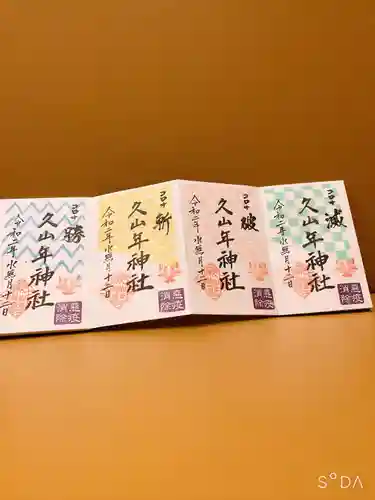 コロナ 滅
久山年神社
令和二年水無月十二日
悪疫
消除
コロナ 破
久山年神社
令和二年水無月十二日
悪疫
消除
コロナ 斬
久山年神社
令和二年水無月十二日
悪疫
消除
コロナ 勝
久山年神社
令和二年水無月十二日
悪疫
消除
SODA